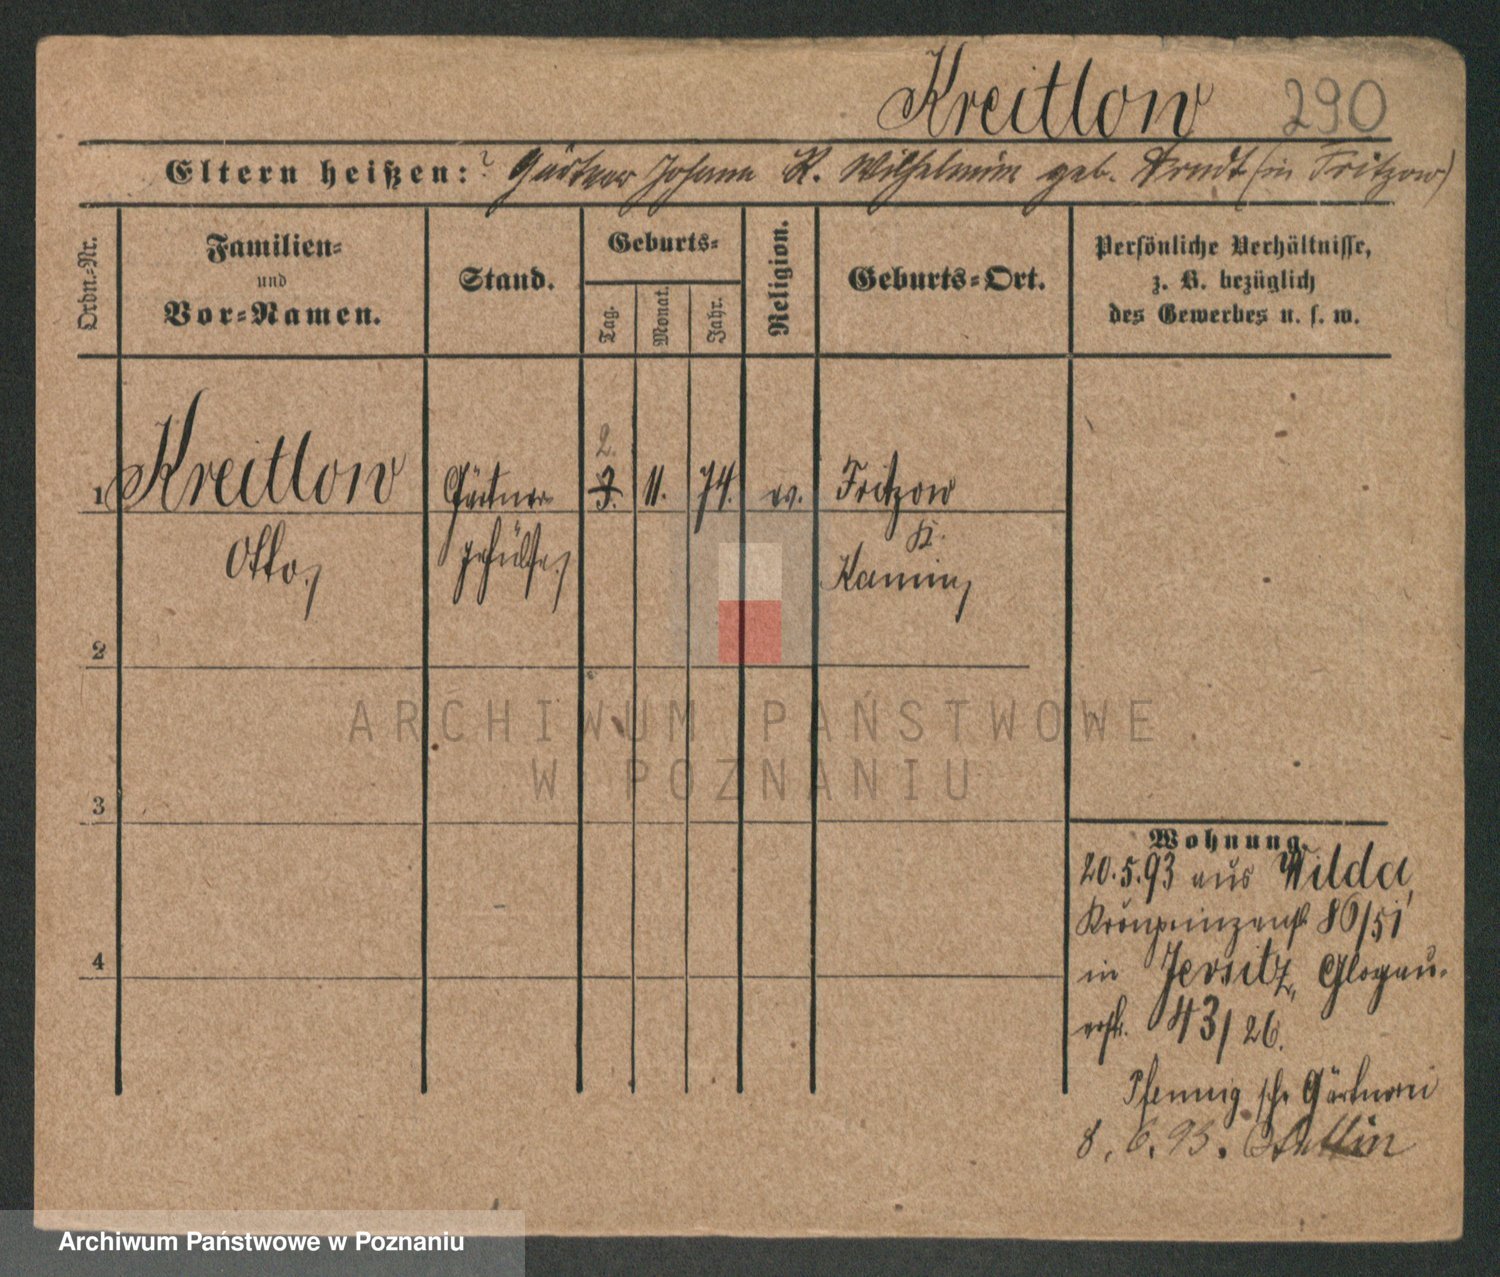 Kreitlow 290
Eltern heißen: ? Gärtner Johann K. Wilhelmine geb. Arndt (in Fritzow)
Ordn.-Nr.
Familien-
und
Vor-Namen.
Stand.
Geburts-
Tag.
Monat.
Jahr.
Religion.
Geburts-Ort.
Persönliche Verhältnisse,
z. B. bezüglich
des Gewerbes u. s. w.
2.
1 Kreitlow Gärtner 3. 11. 74. ev. Fritzow
Otto, gehülfe, K.
Kamin,
2
3
4
Wohnung.
20.5.93 aus Wilda,
Kronprinzenst. 86/51
in Jersitz, Glogau-
erstr. 43/26.
Pfennig'sche Gärtnerei
8. 6. 93. Stettin
ARCHIWUM PAŃSTWOWE
W POZNANIU
Archiwum Państwowe w Poznaniu